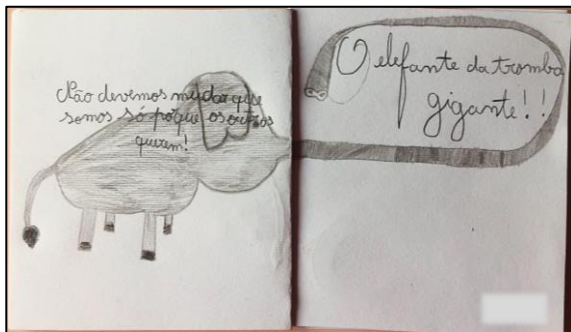 Não devemos mudar que
somos só porque os outros
querem!
O elefante da tromba
gigante!!